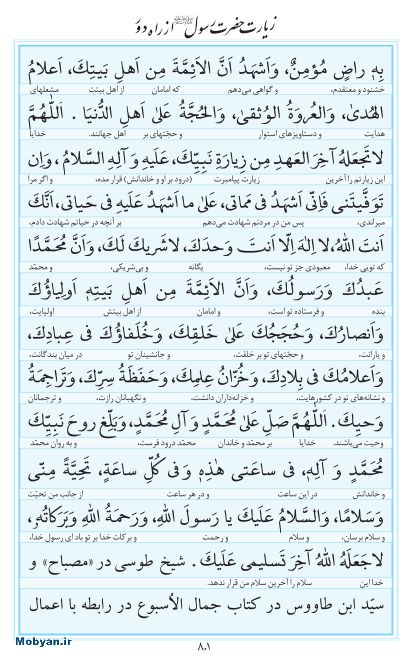 زیارت حضرت رسول ﷺ از راه دور
بِهِ راضٍ مُؤمِنٌ، وَاَشهَدُ اَنَّ الاَئِمَّةَ مِن اَهلِ بَیتِکَ، اَعلامُ
خشنود و معتقدم، و گواهی می‌دهم که امامان از اهل بیتت مشعلهای
الهُدیٰ، وَالعُروَةُ الوُثقیٰ، وَالحُجَّةُ عَلیٰ اَهلِ الدُّنیَا . اَللّٰهُمَّ
هدایت و دستاویزهای استوار و حجّتهای بر اهل جهانند. خدایا
لاتَجعَلهُ آخِرَ العَهدِ مِن زِیارَةِ نَبِیِّکَ، عَلَیهِ وَ آلِهِ السَّلامُ، وَاِن
این زیارتم را آخرین زیارت پیامبرت (درود بر او و خاندانش) قرار مده، و اگر مرا
تَوَفَّیتَنی فَاِنّی اَشهَدُ فی مَماتی، عَلیٰ ما اَشهَدُ عَلَیهِ فی حَیاتی، اَنَّکَ
میراندی، پس من در مردنم شهادت می‌دهم بر آنچه در حیاتم شهادت دادم،
اَنتَ اللّٰهُ، لا اِلٰهَ اِلّا اَنتَ وَحدَکَ، لاشَریکَ لَکَ، وَاَنَّ مُحَمَّدًا
که تویی خدا، معبودی جز تو نیست، یگانه و بی‌شریکی، و محمّد
عَبدُکَ وَرَسولُکَ، وَاَنَّ الاَئِمَّةَ مِن اَهلِ بَیتِهِ اَولِیاؤُکَ
بنده و فرستاده تو است، و امامان از اهل بیتش اولیایت،
وَاَنصارُکَ، وَحُجَجُکَ عَلیٰ خَلقِکَ، وَخُلَفاؤُکَ فی عِبادِکَ،
و یارانت، و حجّتهای تو بر خلقت، و جانشینان تو در میان بندگانت،
وَاَعلامُکَ فی بِلادِکَ، وَخُزّانُ عِلمِکَ، وَحَفَظَةُ سِرِّکَ، وَتَراجِمَةُ
و نشانه‌های تو در کشورهایت، و خزانه‌داران دانشت، و نگهبانان رازت، و ترجمانان
وَحیِکَ. اَللّٰهُمَّ صَلِّ عَلیٰ مُحَمَّدٍ وَ آلِ مُحَمَّدٍ، وَبَلِّغ روحَ نَبِیِّکَ
وحیت می‌باشند. خدایا بر محمّد و خاندان محمّد درود فرست، و به روان محمّد
مُحَمَّدٍ وَ آلِهِ، فی ساعَتی هٰذِهِ وَفی کُلِّ ساعَةٍ، تَحِیَّةً مِنّی
و خاندانش در این ساعت و در هر ساعت از جانب من تحیّت
وَسَلامًا، وَالسَّلامُ عَلَیکَ یا رَسولَ اللّٰهِ، وَرَحمَةُ اللّٰهِ وَبَرَکاتُهُ،
و سلام برسان، و سلام و رحمت و برکات خدا بر تو باد ای رسول خدا،
لاجَعَلَهُ اللّٰهُ آخِرَ تَسلیمی عَلَیکَ . شیخ طوسی در «مصباح» و
خدا این سلام را آخرین سلام من قرار ندهد.
سیّد ابن طاووس در کتاب جمال الأسبوع در رابطه با اعمال
Mobyan.ir
۸۰۱